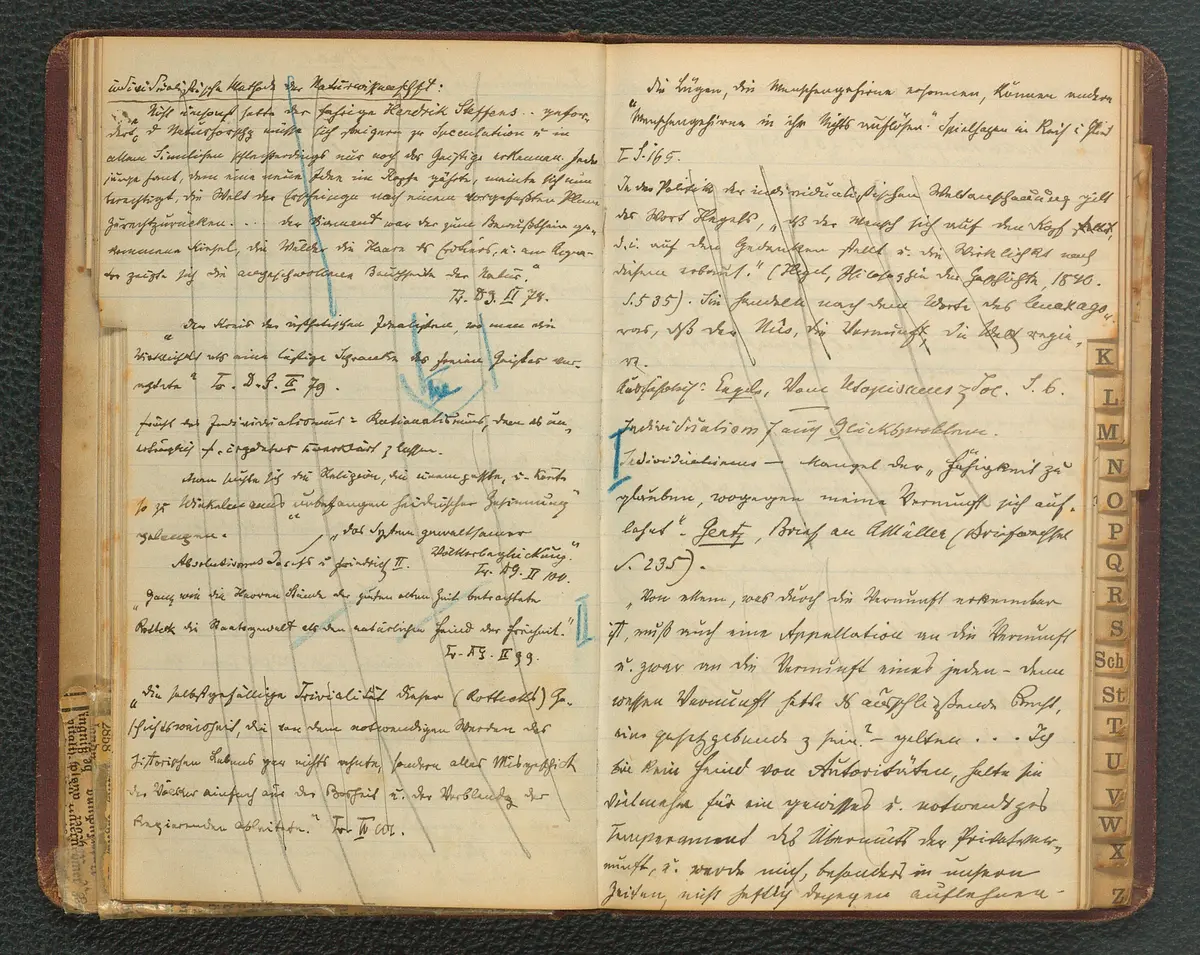 individualistische Methode der Naturwissenschaft:
Nicht umsonst hatte der Henrik Steffens .. gefor-
dert, d Naturforschg müsse sich steigern zu Speculation u in
allem Sinnlichen schlechterdings nur noch das Geistige erkennen. Jeder
junge Fant, dem eine neue Idee im Kopfe gährte, meinte sich nun
berechtigt, die Welt der Erscheings nach einem vorgefaßten Plane
zurechtzurücken. ... der Diamant war der zum Bewußtsein ge-
kommene Kiesel, die Wälder die Haare des Erdthiers, u. am Aequa-
tor zeigte sich die angeschwollene Bauchseite der Natur."
Tr. DG. II 79.
"der Kreis der ästhetischen Idealisten, wo man die
Wirklichkt als eine lästige Schranke des freien Geistes ver-
achtete" Tr. D. G. II 79.
Individualismus = Rationalismus, dem es un-
erträglich ist, irgend etwas unerklärt z lassen.
man suchte sich die Religion, die einem passte, u. konnte
so zu Winkelmanns unbefangen heidnischer Gesinnung"
gelangen.
"das System gewaltsamer
Völkerbeglückung."
Absolutismus Josefs u Friedrich II.
Tr. DG. II 100.
"Ganz wie die Herren Stände der guten alten Zeit betrachtete
Rotteck die Staatsgewalt als den natürlichen Feind der Freiheit."
II
Tr. DG. II 99.
"die selbstgefällige Trivialität dieser (Rottecks) Ge-
schichtsweisheit, die von dem notwendigen Werden des
historischen Lebens gar nichts ahnte, sondern alles Misgeschick
der Völker einfach aus der Bosheit u. der Verblendg der
Regierenden ableitete." Tr. II
die Lügen, die Menschengehirne ersonnen, können andere
Menschengehirne in ihr Nichts auflösen." Spielhagen in Reih u Glied
I S. 165.
In der Politik der individualistischen Weltanschauung gilt
das Wort Hegels, "dß der Mensch sich auf den Kopf,
d.i. auf den Gedanken stellt u. die Wirklichkt nach
diesem erbaut." (Hegel, Philosophie der Geschichte, 1840.
S. 535). Sie handeln nach dem Worte des Anaxago-
ras, dß der Nus, die Vernunft, die Welt regie-
re.
Ausführlich: Engels, Vom Utopismus z Soc. S. 6.
Individualism / auch Glücksproblem.
I
Individualismus — Mangel der "Fähigkeit zu
glauben, wogegen meine Vernunft sich auf-
lehnt". Gentz, Brief an AMüller (Briefwechsel
S. 235).
"Von allem, was durch die Vernunft erkennbar
ist, muß auch eine Appellation an die Vernunft
u. zwar an die Vernunft eines jeden – denn
wessen Vernunft hätte ds ausschließende Recht,
eine gesetzgebende z sein? – gelten . . . Ich
bin kein Feind von Autoritäten, halte sie
vielmehr für ein gewisses u. notwendiges
Temperament des Übermuts der Privatver-
nunft, u. werde mich, besonders in unsern
Zeiten, nicht heftig dagegen auflehnen –
K
L
M
N
O
P
Q
R
S
Sch
St
T
U
V
W
X
Z